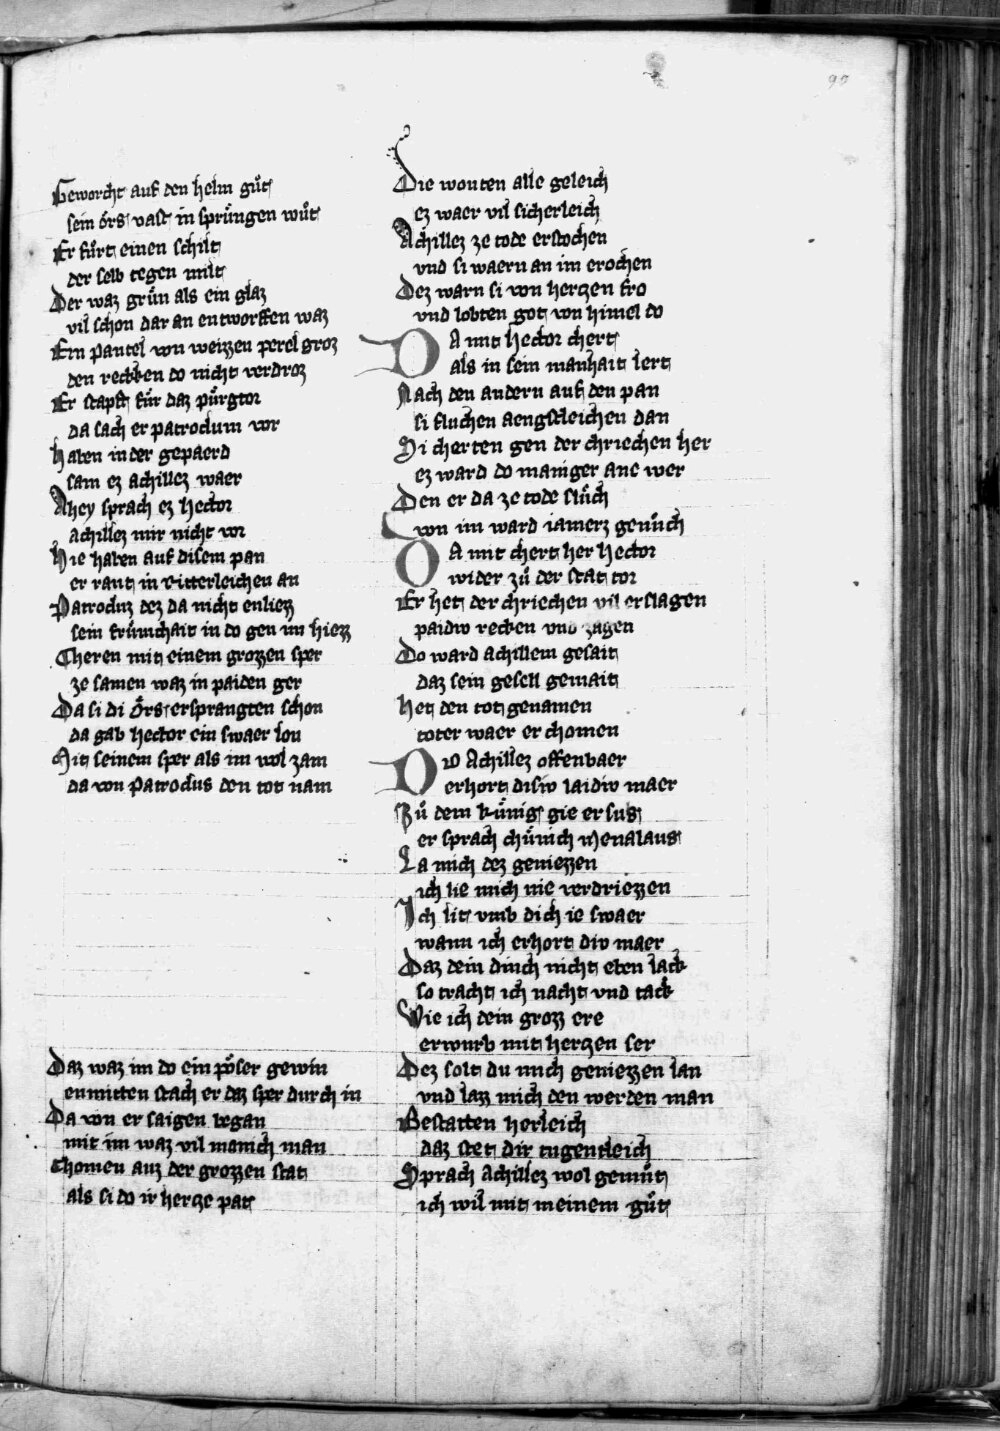 90
Geworcht auf den helm guͦt
sein oͤrs vast in spruͤngen wuͦt
Er fuͦrt einen schilt
der selb tegen milt
Der waz gruͤn als ein glaz
vil schon dar an entworffen waz
Ein pantel von weizzen perel groz
den recken do nicht verdroz
Er stapft fuͤr daz puͤrgtor
da sach er patroclum vor
haben in der gepaerd
sam ez achillez waer
Ahey sprach ez hector
achillez mir nicht vor
hie haben auf disem pan
er rant in ritterleichen an
Patrocluz dez da nicht enliezz
sein fruͤmchait in do gen im hiezz
Cheren mit einem grozzen sper
ze samen waz in paiden ger
Da si di oͤrs ersprangten schon
da gab hector ein swaer lon
Mit seinem sper als im wol zam
da von Patroclus den tot nam
Daz waz im do ein poͤser gewin
enmitten stach er daz sper durch in
Da von er saigen began
mit im waz vil manich man
Chomen auz der grozzen stat
als si do ir hercze pat
Die wonten alle geleich
ez waer vil sicherleich
Achillez ze tode erstochen
vnd si waern an im erochen
Dez warn si von herczen fro
vnd lobten got von himel do
DA mit hector chert
als in sein manhait lert
Nach den andern auf den pan
si fluchen aengstleichen dan
Si cherten gen der chriechen her
ez ward do maniger ane wer
Den er da ze tode sluͦch
von im ward iamerz genuͦch
DA mit chert her hector
wider zuͦ der stat tor
Er het der chriechen vil erslagen
paidiv recken vnd zagen
Do ward achillem gesait
daz sein gesell gemait
het den tot genamen
toter waer er chomen
DO Achillez offenbaer
erhort disiv laidiv maer
Zuͦ dem kuͤnig gie er sus
er sprach chuͤnich Menalaus
La mich dez geniezzen
ich lie mich nie verdriezzen
Ich lit vmb dich ie swaer
wann ich erhort div maer
Daz dein dinch nicht eben lack
so tracht ich nacht vnd tack
Wie ich dein grozz ere
erwurb mit herczen ser
Dez solt du mich geniezzen lan
vnd lazz mich den werden man
Bestatten herleich
daz stet dir tugentleich
Sprach achillez wol gemuͦt
ich wil mit meinem guͦt